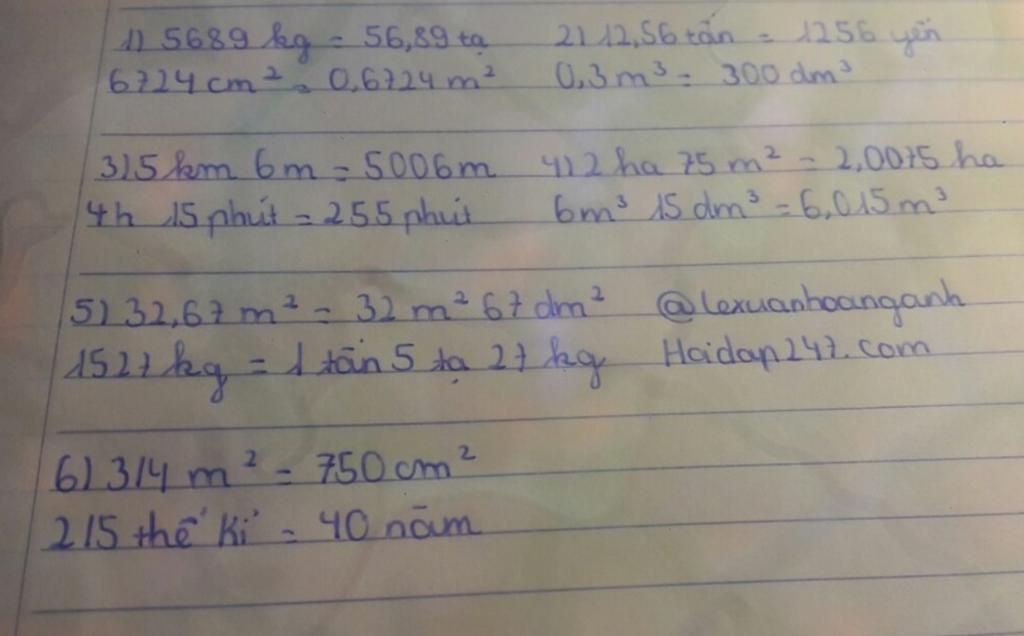 1) 5689 kg = 56,89 tạ 2) 12,56 tấn = 1256 yến
6724 cm² = 0,6724 m² 0,3 m³ = 300 dm³
3) 5 km 6m = 5006m 4) 2 ha 75 m² = 2,0075 ha
4h 15 phút = 255 phút 6m³ 15 dm³ = 6,015 m³
5) 32,67 m² = 32 m² 67 dm² @lexuanhoanganh
1527 kg = 1 tấn 5 tạ 27 kg Hoidap247.com
6) 3/4 m² = 750 cm²
2/5 thế kỉ = 40 năm